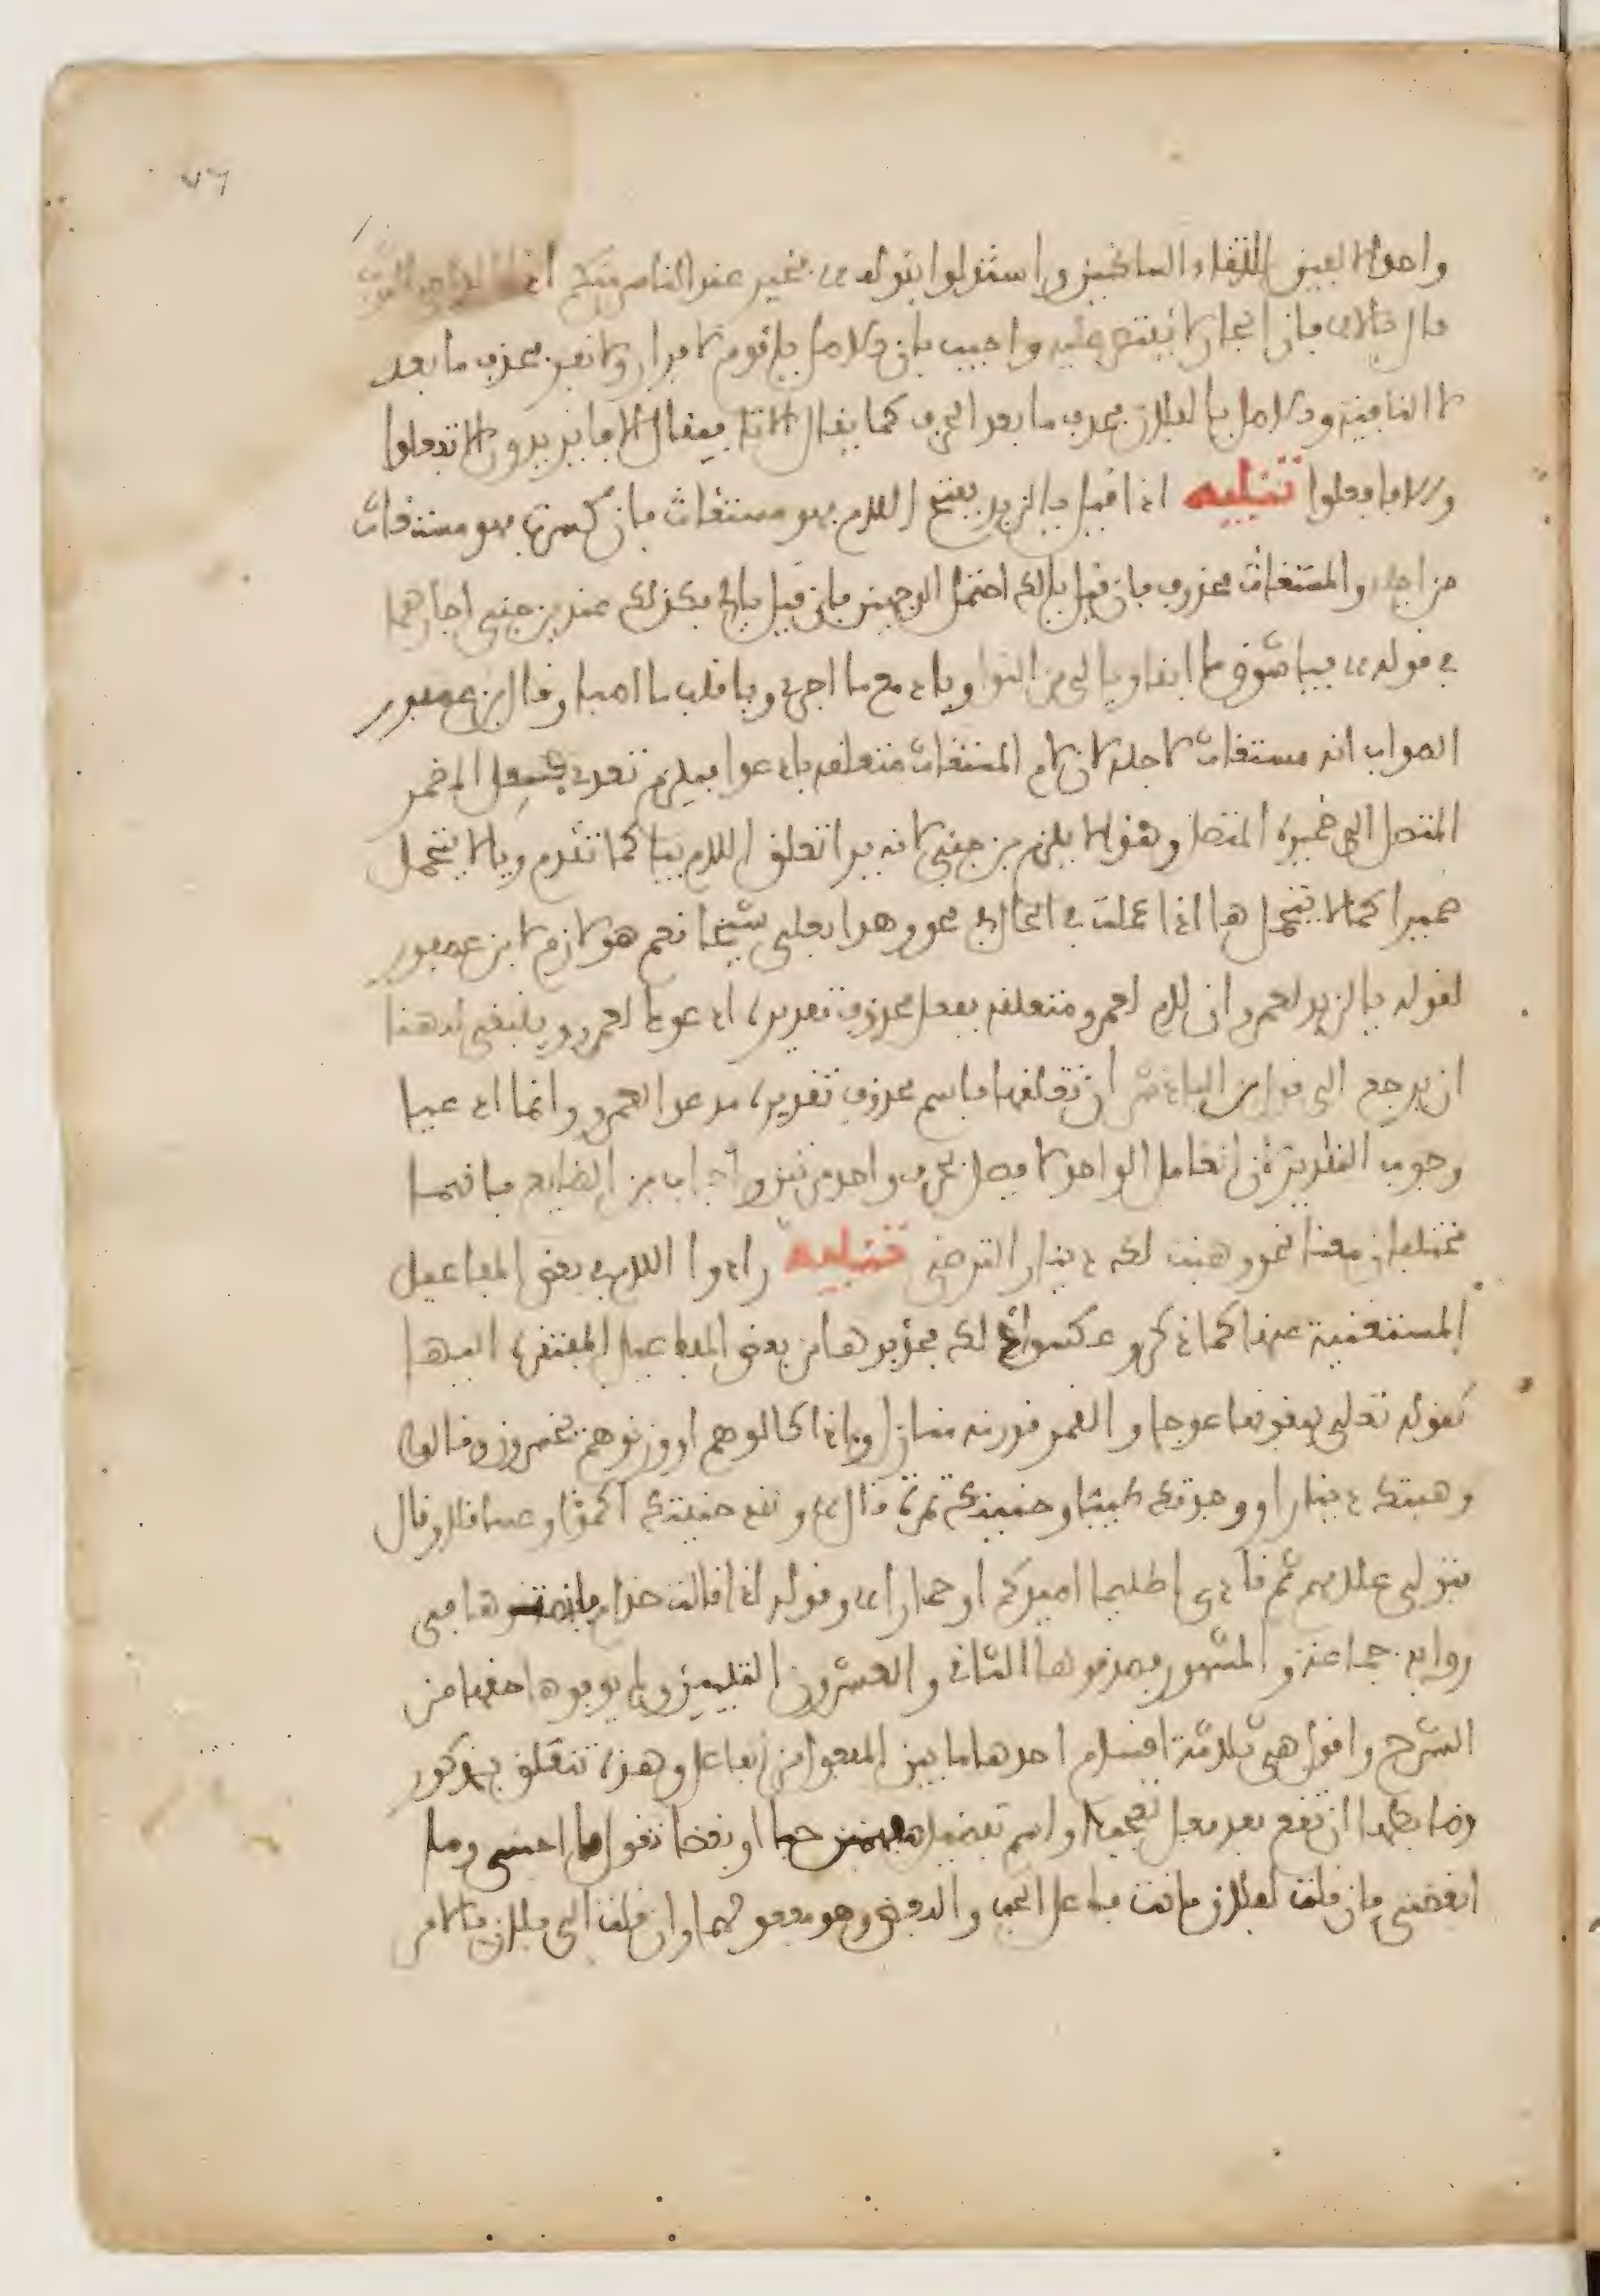 ٧٦
واحدى الالفين لالتقاء الساكنين واستدلوا بقوله فخير نحن عند الناس منكم اذا الداعي المثوب
قال يالا فان الجار لا يقتصر عليه واجيب بان الاصل يا قوم لا فرار ولا نفر فحذف ما بعد
لا النافية والاصل يا لفلان فحذف ما بعد الحرف كما يقال الاتا فيقال الافا يريدون الا تفعلوا
والا فافعلوا تنبيه اذا قيل يا لزيد بفتح اللام فهو مستغاث فان كسرت فهو مستغاث
من اجله والمستغاث محذوف فان قيل يا لك احتمل الوجهين فان قيل يا لي فكذلك عند بن جني اجازهما
في قوله فيا شوق ما ابقا ويا لي من النوا ويا دمع ما اجرى ويا قلب ما اصبا وقال بن عصفور
الصواب انه مستغاث لاجله لان لام المستغاث متعلقه بادعوا فيلزم تعدي فعل المضمر
المتصل الى ضميره المتصل وهذا لا يلزم بن جني لانه يرا تعلق اللام بيا كما تقدم ويا لا يتحمل
ضميرا كما لا يتحمل ها اذا عملت في الحال في نحو وهذا بعلي شيخا نعم هو لازم لابن عصفور
لقوله يا لزيد لعمرو ان لام لعمرو متعلقه بفعل محذوف تقديره ادعوك لعمرو وينبغي له هنا
ان يرجع الى قول بن الباذش ان تعلقها باسم محذوف تقديره مدعوا لعمرو وانما ادعيا
وجوب التقدير لان العامل الواحد لا يصل بحرف واحد مرتين واجاب بن الضايع بانهما
مختلفان معنا نحو وهبت لك دينارا لترضى تنبيه زادوا اللام في بعض المفاعيل
المستغنية عنها كما ذكر وعكسوا ذلك فحذفوها من بعض المفاعيل المفتقرة اليها
كقوله تعلى يبغونها عوجا والقمر قدرنه منازل واذا كالوهم او وزنوهم يخسرون وقالوا
وهبتك دينارا وصدتك ظبيا وجنيتك ثمرة قال ولقد جنيتك اكمؤا وعساقلا وقال
فتولى غلامهم ثم نادى اظليما اصيدكم ام حمارا وقوله اذا قالت حذام فانصتوها في
رواية جماعة والمشهور فصدقوها الثاني والعشرون التبيين ولم يوفوها حقها من
الشرح واقول هي ثلاثة اقسام احدها ما تبين المفعول من الفاعل وهذه تتعلق بمذكور
وضابطها ان تقع بعد فعل تعجب او اسم تفضيل مفهمين حبا او بغضا تقول ما احبني وما
ابغضني فان قلت لفلان فانت فاعل الحب والبغض وهو مفعولهما وان قلت الى فلان فالامر